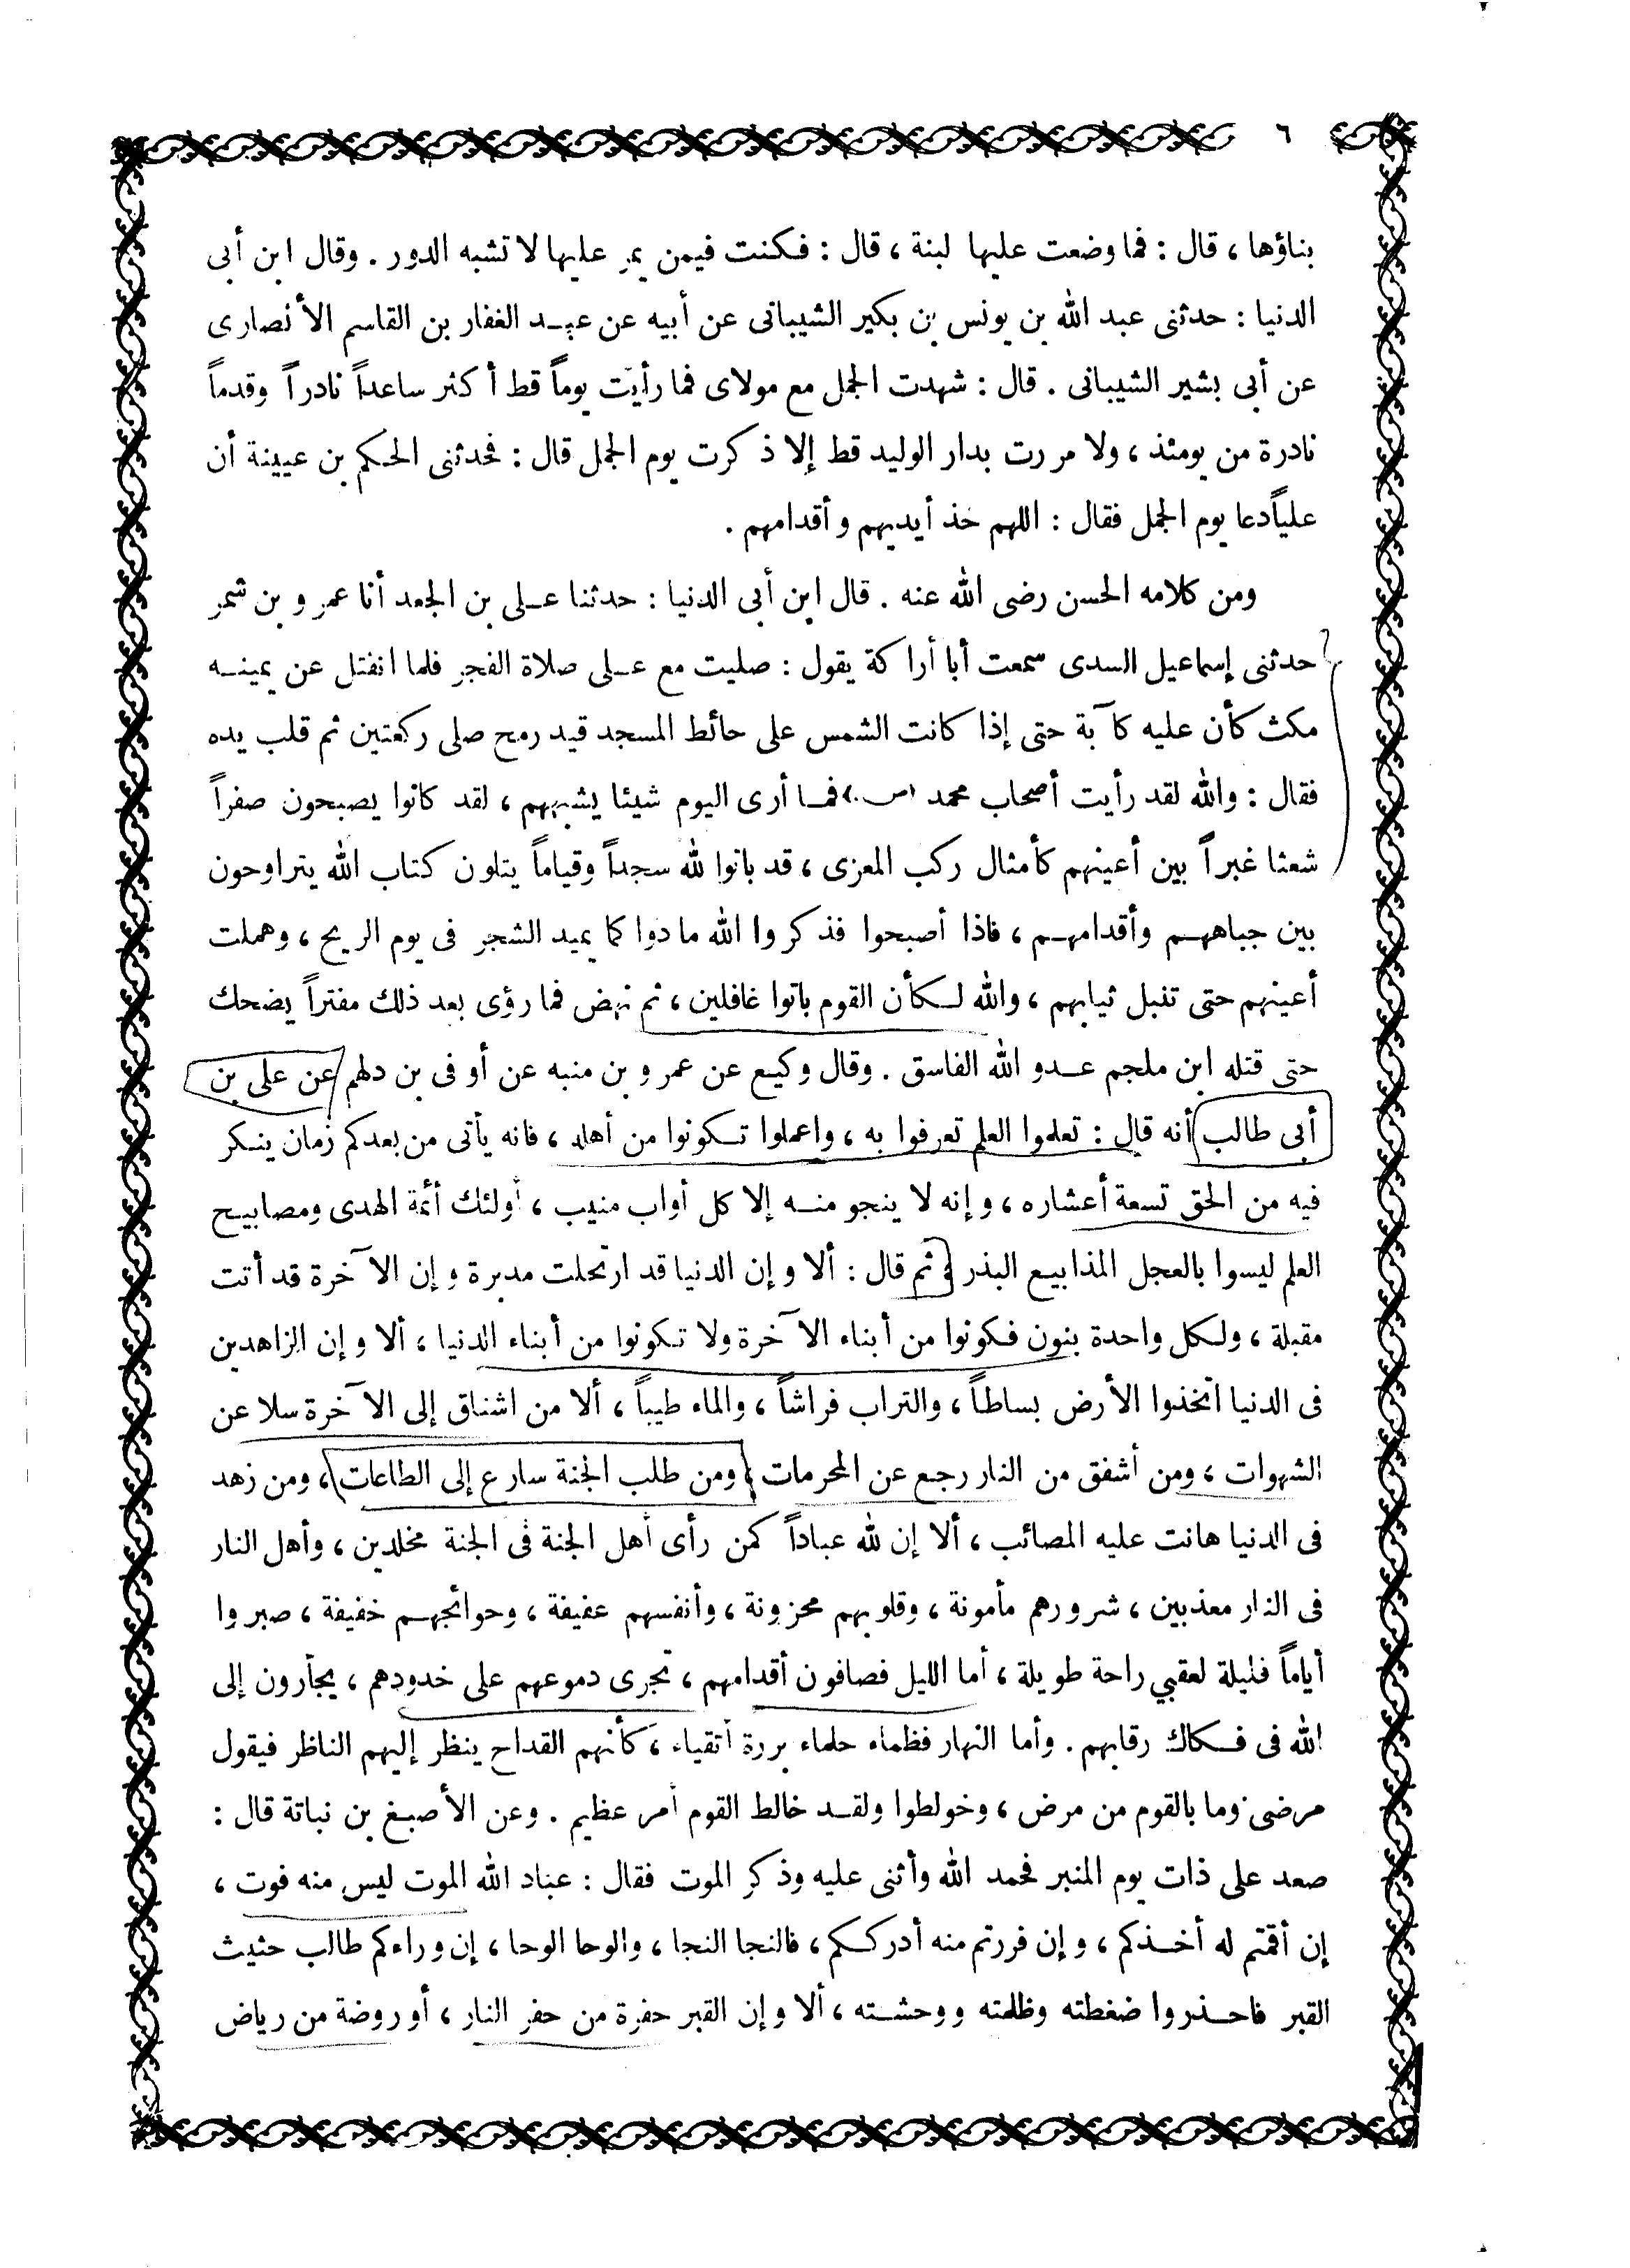 ٦
بناؤها، قال: فما وضعت عليها لبنة، قال: فكنت فيمن يمر عليها لا تشبه الدور. وقال ابن أبى
الدنيا: حدثنى عبد الله بن يونس بن بكير الشيبانى عن أبيه عن عبد الغفار بن القاسم الأنصارى
عن أبى بشير الشيبانى. قال: شهدت الجمل مع مولاى فما رأيت يوماً قط أكثر ساعداً نادراً وقدماً
نادرة من يومئذ، ولا مررت بدار الوليد قط إلا ذكرت يوم الجمل قال: فحدثنى الحكم بن عيينة أن
علياً دعا يوم الجمل فقال: اللهم خذ أيديهم وأقدامهم.
ومن كلامه الحسن رضى الله عنه. قال ابن أبى الدنيا: حدثنا على بن الجعد أنا عمرو بن شمر
حدثنى إسماعيل السدى سمعت أبا أراكة يقول: صليت مع على صلاة الفجر فلما انفتل عن يمينه
مكث كأن عليه كآبة حتى إذا كانت الشمس على حائط المسجد قيد رمح صلى ركعتين ثم قلب يده
فقال: والله لقد رأيت أصحاب محمد (ص.) فما أرى اليوم شيئا يشبههم، لقد كانوا يصبحون صفراً
شعثا غبراً بين أعينهم كأمثال ركب المعزى، قد باتوا لله سجداً وقياماً يتلون كتاب الله يتراوحون
بين جباههم وأقدامهم، فاذا أصبحوا فذكروا الله مادوا كما يميد الشجر فى يوم الريح، وهملت
أعينهم حتى تنبل ثيابهم، والله لكأن القوم باتوا غافلين، ثم نهض فما رؤى بعد ذلك مفتراً يضحك
حتى قتله ابن ملجم عدو الله الفاسق. وقال وكيع عن عمرو بن منبه عن أوفى بن دلهم عن على بن
أبى طالب أنه قال: تعلموا العلم تعرفوا به، واعملوا تكونوا من أهله، فانه يأتى من بعدكم زمان ينكر
فيه من الحق تسعة أعشاره، وإنه لا ينجو منه إلا كل أواب منيب، أولئك أئمة الهدى ومصابيح
العلم ليسوا بالعجل المذابيع البذر ثم قال: ألا وإن الدنيا قد ارتحلت مدبرة وإن الآخرة قد أتت
مقبلة، ولكل واحدة بنون فكونوا من أبناء الآخرة ولا تكونوا من أبناء الدنيا، ألا وإن الزاهدين
فى الدنيا اتخذوا الأرض بساطاً، والتراب فراشاً، والماء طيباً، ألا من اشتاق إلى الآخرة سلا عن
الشهوات، ومن أشفق من النار رجع عن المحرمات، ومن طلب الجنة سارع إلى الطاعات، ومن زهد
فى الدنيا هانت عليه المصائب، ألا إن لله عباداً كمن رأى أهل الجنة فى الجنة مخلدين، وأهل النار
فى النار معذبين، شرورهم مأمونة، وقلوبهم محزونة، وأنفسهم عفيفة، وحوائجهم خفيفة، صبروا
أياماً قليلة لعقبي راحة طويلة، أما الليل فصافون أقدامهم، تجرى دموعهم على خدودهم، يجأرون إلى
الله فى فكاك رقابهم. وأما النهار فظماء حلماء بررة أتقياء، كأنهم القداح ينظر إليهم الناظر فيقول
مرضى وما بالقوم من مرض، وخولطوا ولقد خالط القوم أمر عظيم. وعن الأصبغ بن نباتة قال:
صعد على ذات يوم المنبر فحمد الله وأثنى عليه وذكر الموت فقال: عباد الله الموت ليس منه فوت،
إن أقمتم له أخذكم، وإن فررتم منه أدرككم، فالنجا النجا، والوحا الوحا، إن وراءكم طالب حثيث
القبر فاحذروا ضغطته وظلمته ووحشته، ألا وإن القبر حفرة من حفر النار، أو روضة من رياض